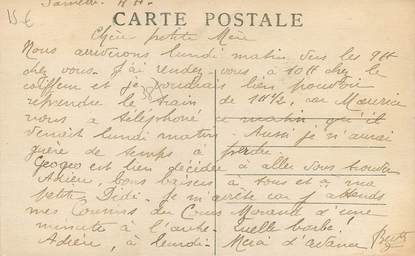 15€
Samedi. 4 H.
CARTE POSTALE
Chère petite Mère
Nous arriverons lundi matin vers les 9H
chez vous. J'ai rendez-vous à 10H chez le
coiffeur et je voudrais bien pouvoir
reprendre le train de car Maurice
nous a téléphoné ce matin qu'il
venait lundi matin. Aussi je n'aurai
guère de temps à perdre.
est bien décidée à aller vous trouver
bons baisers à tous et à ma
petite Didi. Je m'arrête car j'attends
mes du Cours Morand d'une
minute à l'autre. Quelle barbe!
à lundi. Merci d'avance